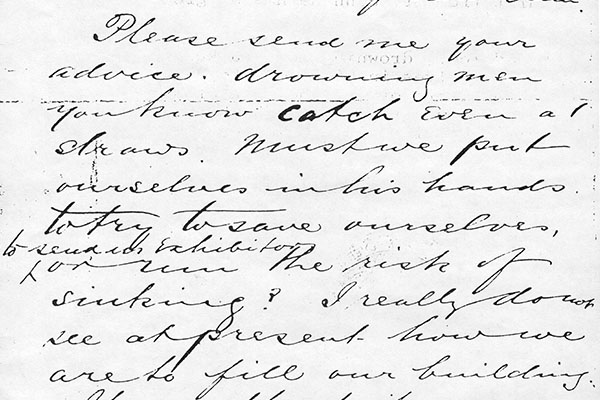 Please send me your
advice. drowning men
you know catch even at
straws. Must we put
ourselves in his hands
to try to save ourselves,
to send us Exhibitors
or run the risk of
sinking? I really do not
see at present how we
are to fill our building.